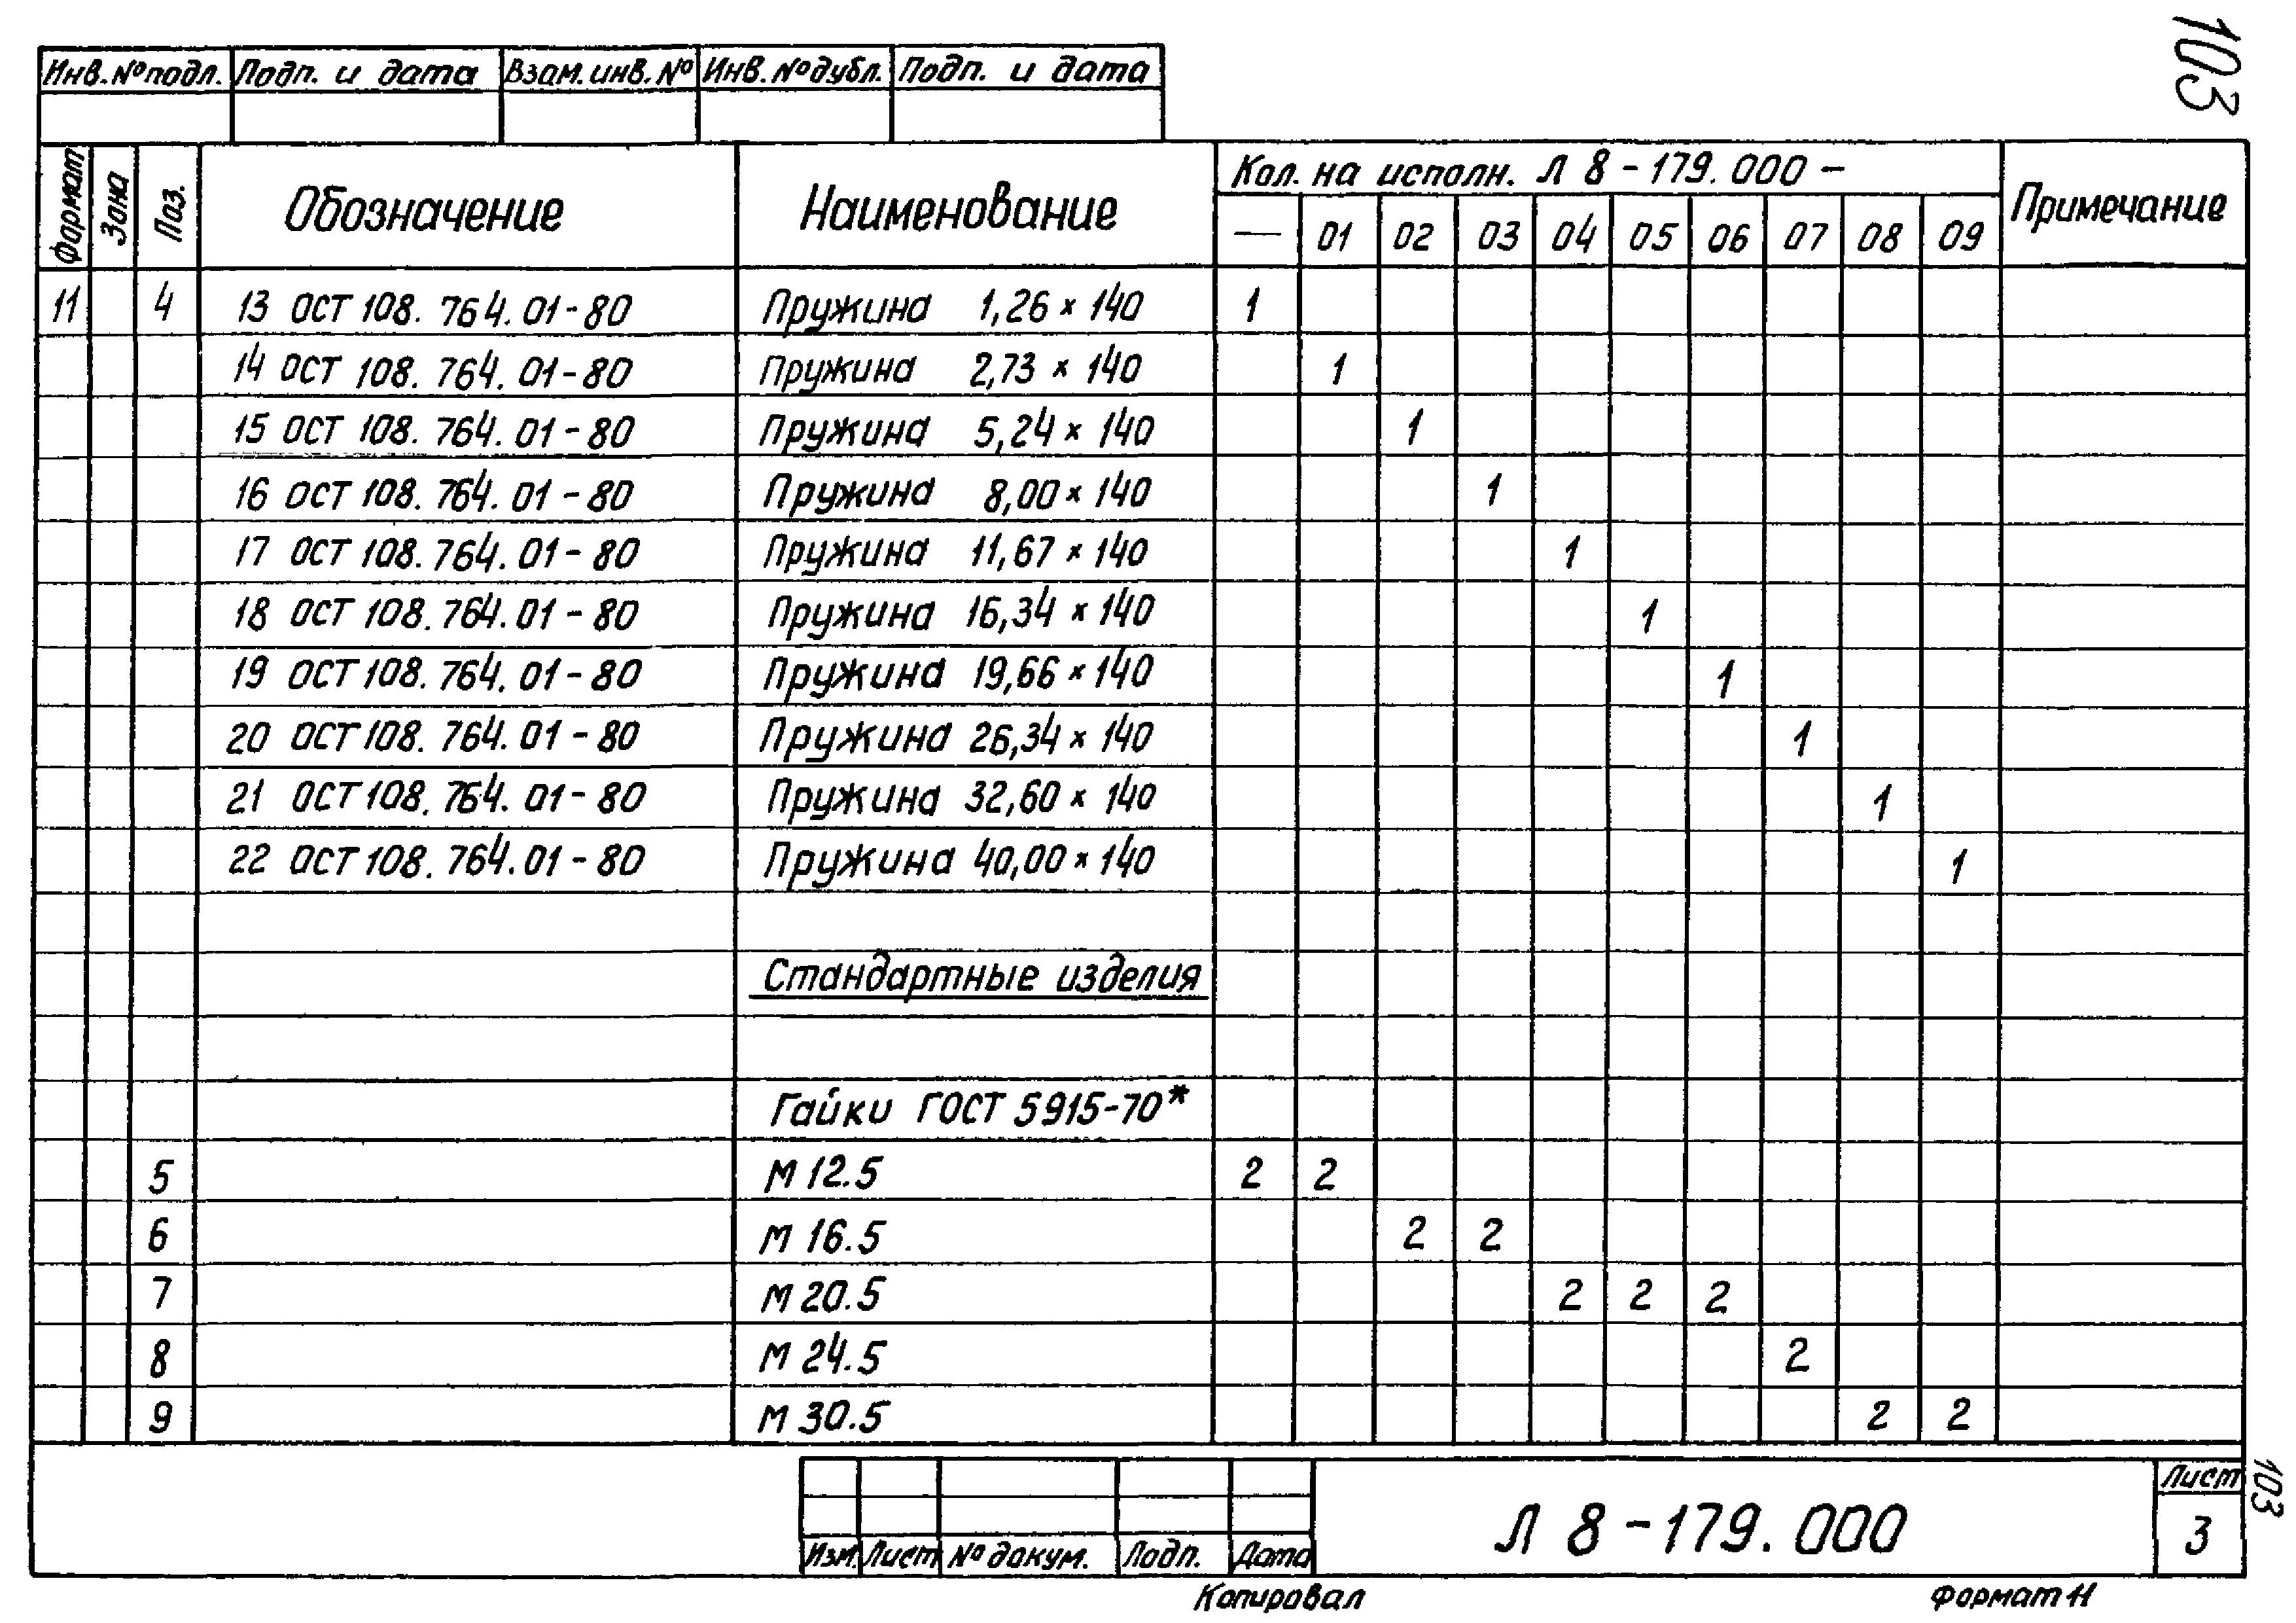 103
Инв.№подл. Подп. и дата Взам.инв.№ Инв.№дубл. Подп. и дата
Формат Зона Поз. Обозначение Наименование Кол. на исполн. Л 8-179.000- Примечание
— 01 02 03 04 05 06 07 08 09
11 4 13 ОСТ 108.764.01-80 Пружина 1,26×140 1
14 ОСТ 108.764.01-80 Пружина 2,73×140 1
15 ОСТ 108.764.01-80 Пружина 5,24×140 1
16 ОСТ 108.764.01-80 Пружина 8,00×140 1
17 ОСТ 108.764.01-80 Пружина 11,67×140 1
18 ОСТ 108.764.01-80 Пружина 16,34×140 1
19 ОСТ 108.764.01-80 Пружина 19,66×140 1
20 ОСТ 108.764.01-80 Пружина 26,34×140 1
21 ОСТ 108.764.01-80 Пружина 32,60×140 1
22 ОСТ 108.764.01-80 Пружина 40,00×140 1
Стандартные изделия
Гайки ГОСТ 5915-70*
5 М 12.5 2 2
6 М 16.5 2 2
7 М 20.5 2 2 2
8 М 24.5 2
9 М 30.5 2 2
Изм. Лист № докум. Подп. Дата Л 8-179.000 Лист 3
103
Копировал Формат 11